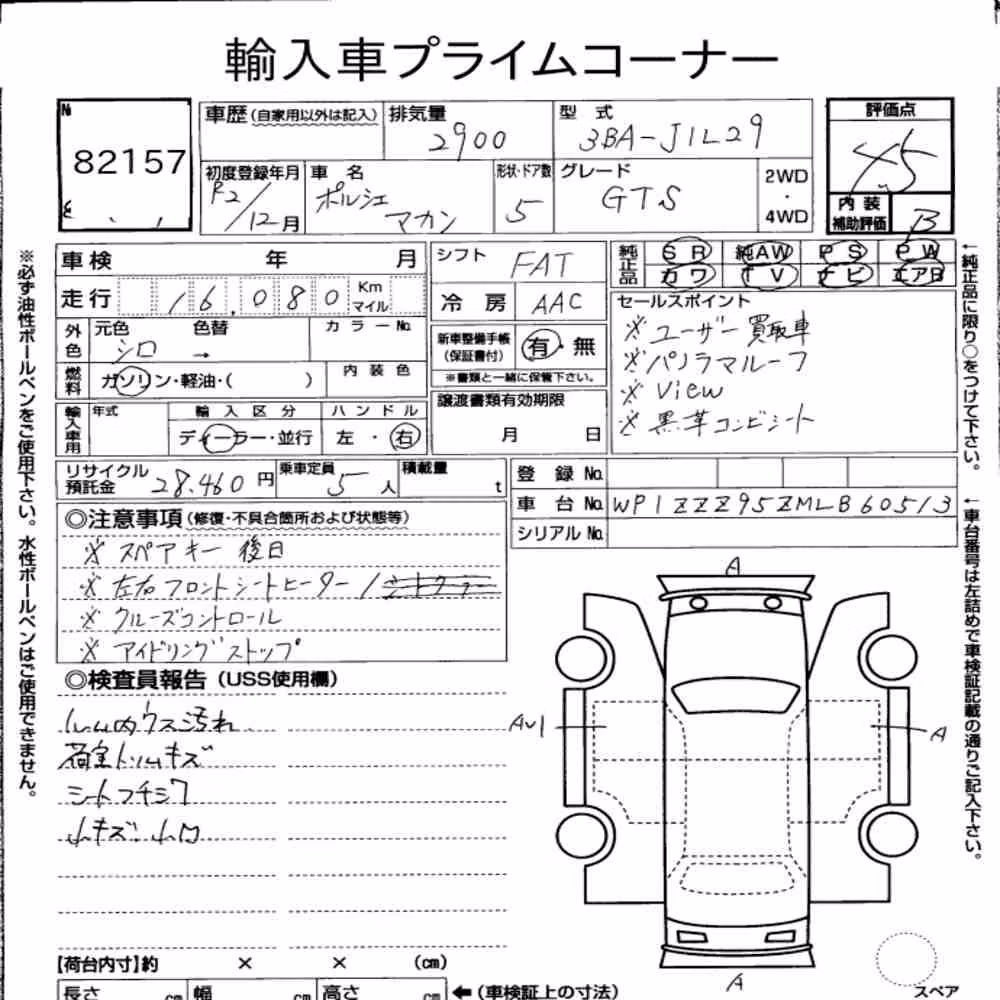 輸入車プライムコーナー
№ 82157
車歴(自家用以外は記入) 排気量 2900 型式 3BA-J1L29
初度登録年月 R2/12月 車名 ポルシェ マカン 形状・ドア数 5 グレード GTS 2WD・4WD
評価点 4.5
内装補助評価 B
車検 年 月
走行 16,080 Km マイル
シフト FAT
冷房 AAC
純正品 SR 純AW PS PW
カワ TV ナビ エアB
外色 元色 シロ 色替 → カラーNo.
燃料 ガソリン・軽油・( ) 内装色
新車整備手帳(保証書付) 有・無
※書類と一緒に保管下さい。
輸入車用 年式 輸入区分 ディーラー・並行 ハンドル 左・右
譲渡書類有効期限 月 日
セールスポイント
※ユーザー買取車
※パノラマルーフ
※View
※黒革コンビシート
リサイクル預託金 28,460円 乗車定員 5人 積載量 t
登録No.
車台No. WP1ZZZ95ZMLB60513
シリアルNo.
◎注意事項(修復・不具合箇所および状態等)
※スペアキー後日
※左右フロントシートヒーター/
※クルーズコントロール
※アイドリングストップ
◎検査員報告(USS使用欄)
ルーム内ウス汚れ
荷室トリムキズ
シートフチシワ
小キズ.小凹
A
AU1
A
A
【荷台内寸】約 × × (cm)
長さ cm 幅 cm 高さ cm ←(車検証上の寸法)
スペア
※必ず油性ボールペンをご使用下さい。水性ボールペンはご使用できません。
←純正品に限り○をつけて下さい。
←車台番号は左詰めで車検証記載の通りご記入下さい。